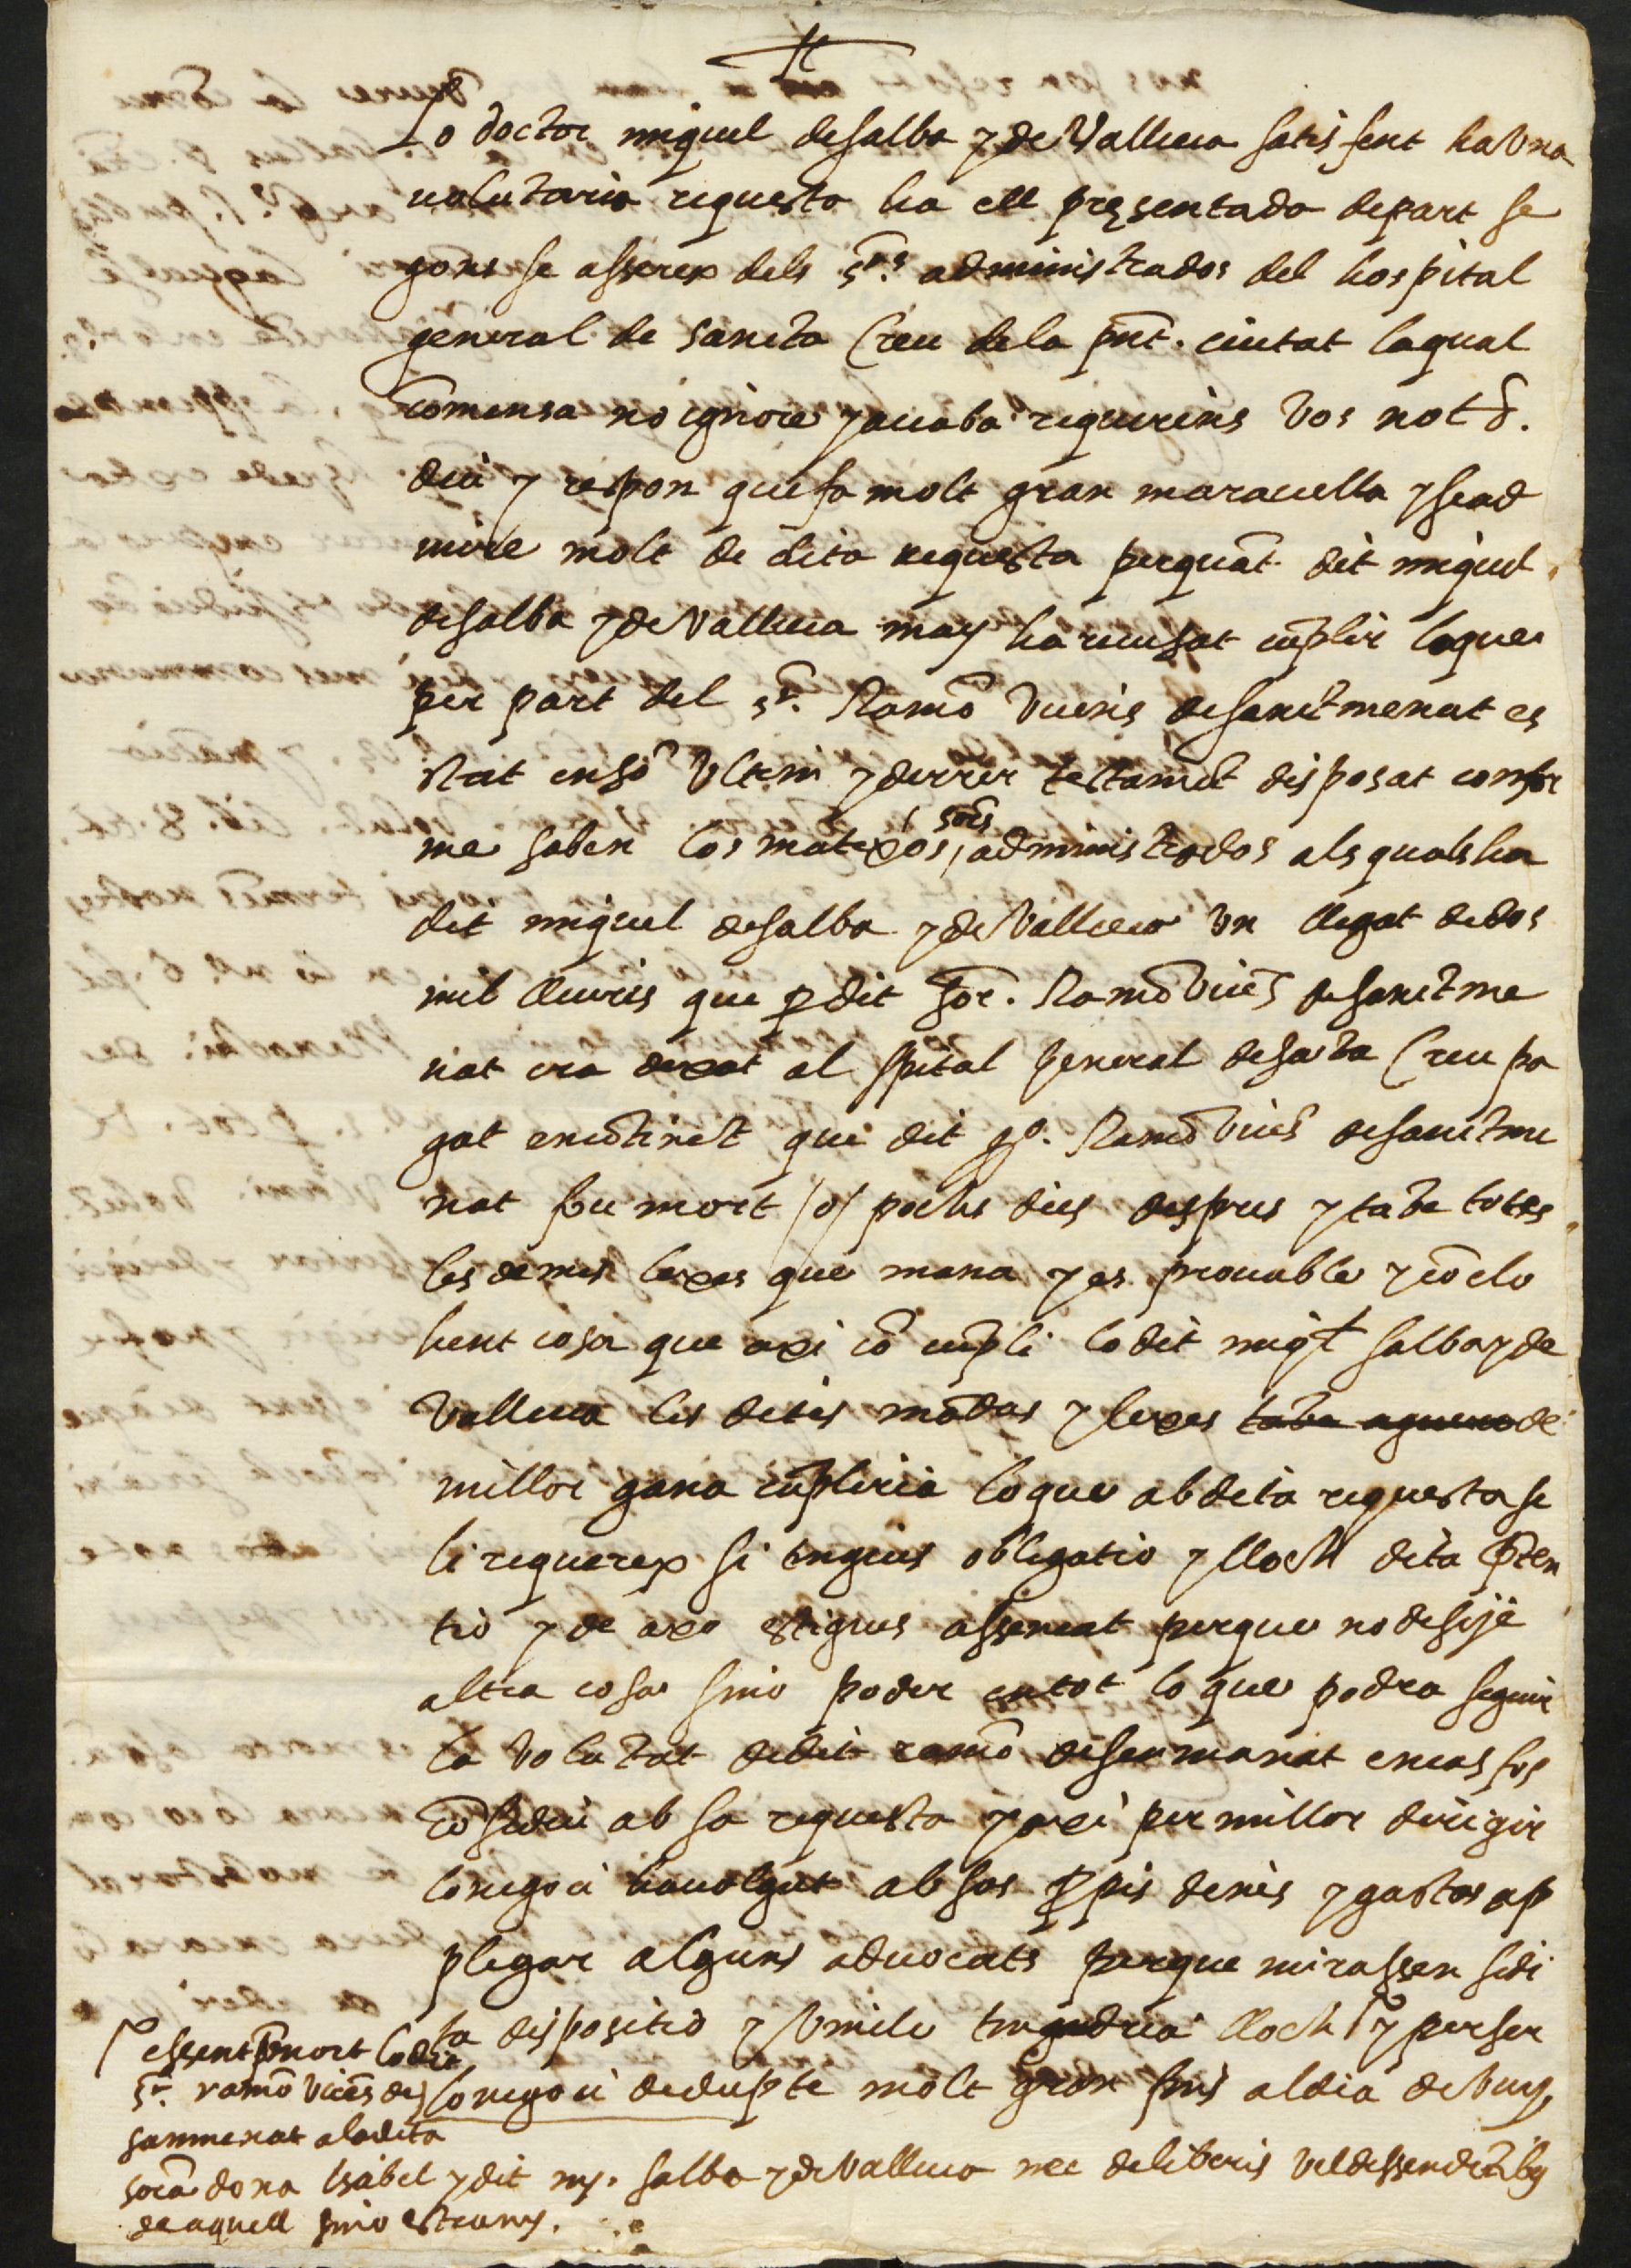 Lo doctor miquel desalba y de Valluca satisfent ha una
volutaria requesta ha ell presentada depart se
gons se asserex dels srs. administrados del hospital
general de sancta Creu dela pnt. ciutat laqual
comensa no ignore y acaba requirens vos not &.
diu y respon que fa molt gran maravella y se ad
mire molt de dita requesta perquãt dit miquel
desalba y de Valluca may ha recusat cũplir loque
per part del sr. Ramõ Vicens de sanctmenat es
stat en sõ ultim y derrer testamẽt disposat confor
me saben los matexos sors administrados als quals ha
dit miquel desalba y de Valluca un llegat de dos
mil lliuris que p dit sor. Ramõ Vicẽs de sanctme
nat era dexat al spital general de sãta Creu pa
gat encõtinẽt que dit so. Ramõ Vicẽs de sanctme
nat fou mort /o/ pochs dies despres y tãbe totes
les demes lexes que mana y es provable y cõclo
hent cosa que axi cõ cũpli lo dit miql salba y de
Valluca les dites mãdas y lexes tãbe de
millor gana cũpliria loque ab dita requesta se
li requerex si tingues obligatio y lloch dita prẽten
tio y de axo stigues asserenat perque no desije
altra cosa sino poder en tot lo que podra seguir
la volũtat de dit ramõ de senmanat en cas fos
cõ sediu ab sa requesta y axi per millor dirigir
lo negoci ha volgut ab sos ppis denes y gastos ap
plegar alguns advocats perque mirassen si di
ta dispositio y vincle tingudria lloch y per ser
lo negoci de dupte molt gran fins al dia de vuy
essent p̃mort lo dit
sr. ramõ Vicẽs de
sanmenat a la dita
sora dona Isabel y dit my. salba y de Valluca nec de liberis vel dessendẽtibg
de aquell sino estrany.